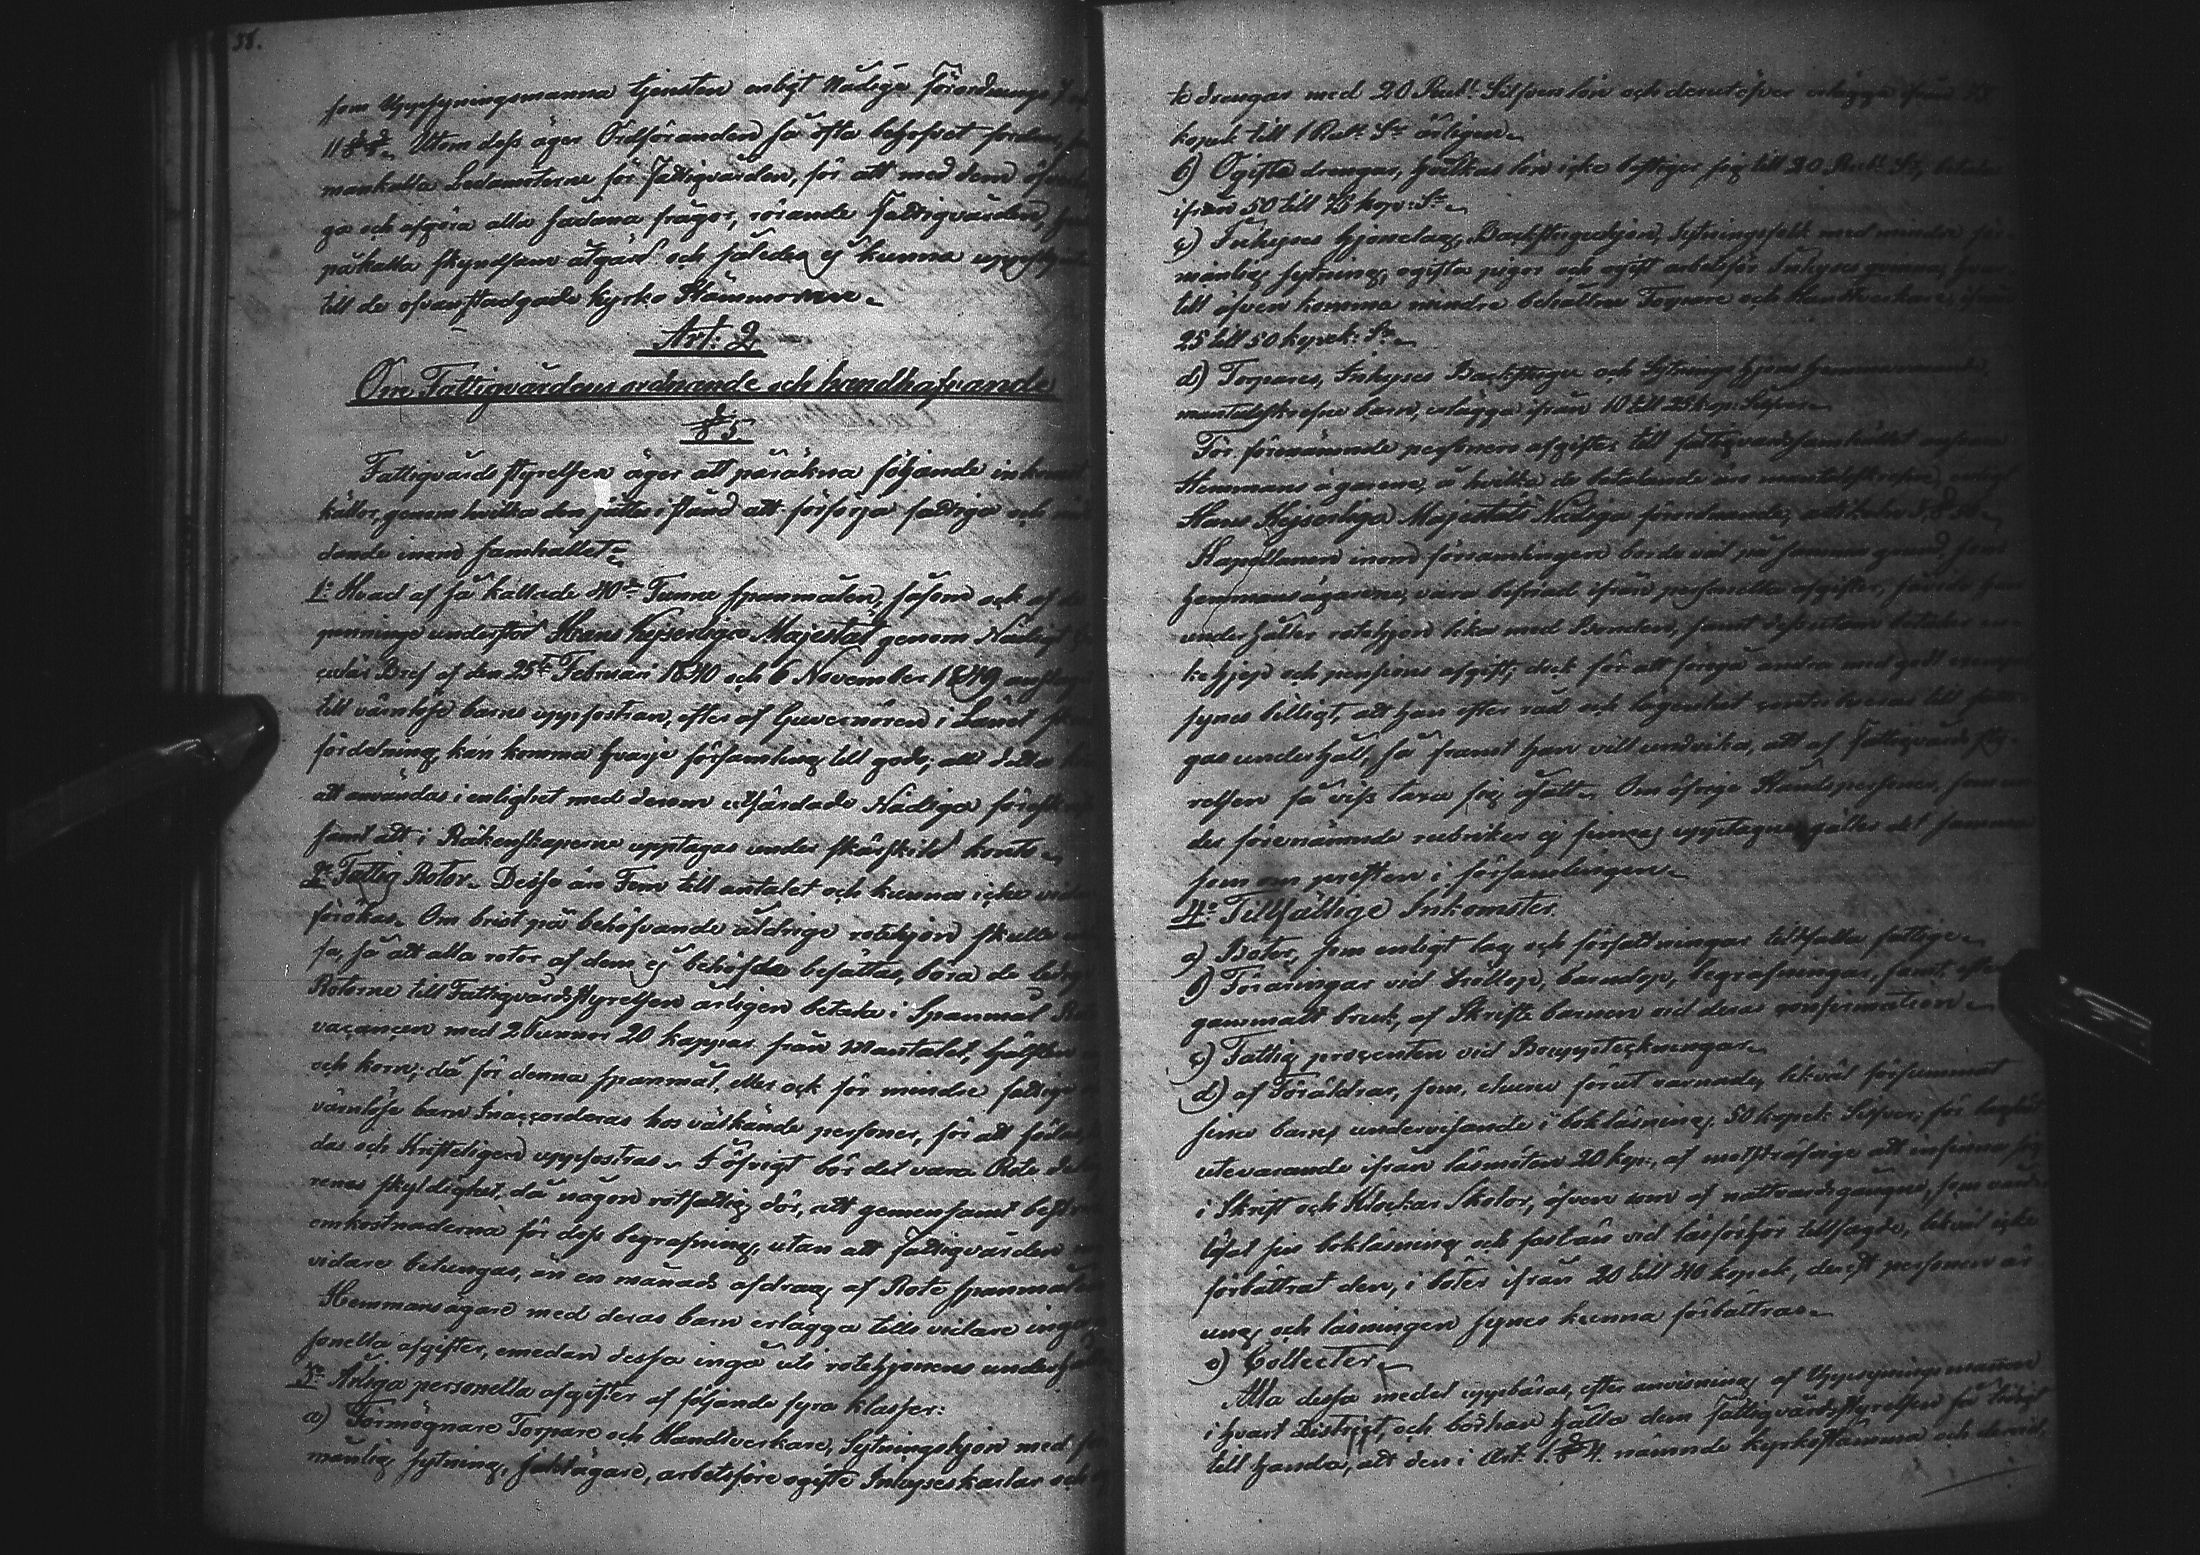 38.
som Uppsyningsmanna tjensten enligt Nådiga Förordnings 7 o
11 §§. Utom dess äger Ordföranden så ofta behofvet fordrar,
mankalla Ledamöterne för Fattigvården, för att med dem
ga och afgöra alla sådana frågor, rörande Fattigvården,
påkalla skyndsam åtgärd och således ej kunna uppskjut
till de ofvanstadgade Kyrko Stämmorne.
Art: 2.
Om Fattigvårdens ordnande och handhafvande
§ 5.
Fattigvårds Styrelsen äger att påräkna följande inkomst
källor, genom hvilka den sättes i stånd att försörja fattiga och
dande inom samhället:
1:o Hvad af så kallade 40:de Tunne spanmålen, såsom ock af de
penninge understöd Hans Kejserliga Majestät genom Nådigt
culär Bref af den 25:te Februari 1840 och 6 November 1849 anslagit
till värnlöse barns uppfostran, efter af Guvernören i Länet
fördelning, kan komma hvarje församling till godo; allt detta bör
att användas i enlighet med derom utfärdade Nådiga föreskr
samt att i Räkenskaperne upptagas under särskildt konto.
2:o Fattig Rotor. Dessa äro Fem till antalet och kunna icke vidare
förökas. Om brist på behöfvande åldrige rotehjon skulle
sa, så att alla rotor af dem ej behöfde besättas, böra de ledig
Roterne till Fattigvårdsstyrelsen årligen betala i Spanmål
vacancen med 2 tunnor 20 kappar från Mantalet, hälften
och korn; då för denna spanmål, eller ock för mindre fattige
värnlöse barn inaccorderas hos välkände personer, för att födas,
das och Kristeligen uppfostras. I öfrigt bör det vara Rote
renas skyldighet, då någon rotfattig dör, att gemensamt best
omkostnaderna för dess begrafning, utan att Fattigvården
vidare betungas, än en månads afdrag af Rote spanmålen
Hemmansägare med deras barn erlägga tills vidare inga
sonella afgifter, emedan dessa ingå uti rotehjonens underhåll
3:o Årliga personella afgifter af följande fyra klasser:
a) Förmögnare Torpare och Handtverkare, Sytningshjon med
månlig sytning, saltägare, arbetsföre ogifte Inhyseskarlar och
te drengar med 20 Rub:l Silfvers lön och derutöfver erlägga ifrån 75
kopek till 1 Rub:l S:r årligen.
b) Ogifta drengar, hvilkas lön icke bestiger sig till 20 Rub:l S:r, betala
ifrån 50 till 75 kop: S:r.
c) Inhyses hjonelag, Backstuguhjon, Sytningsfolk med mindre för-
månlig sytning, ogifta pigor och ogift arbetsför Inhyses qvinna, hvar-
till äfven komma mindre behållne Torpare och Handtverkare, ifrån
25 till 50 kopek: S:r.
d) Torpares, Inhyses Backstugu och Sytnings hjons hemmavarande
mantalsskrefne barn, erlägga ifrån 10 till 25 kop. Silfver.
För förenämnde personers afgifter till fattigvårdssamhället ansvara
Hemmans ägarene, å hvilka de betalande äro mantalsskrefne, enligt
Hans Kejserliga Majestäts Nådiga förordnande,
Kapellanen inom församlingen borde väl på samma grund, som
hemmansägarene, vara befriad ifrån personella afgifter, då
underhåller rotehjon lika med Bonden, samt dessutom betalar
och pensions afgift, dock för att föregå andra med godt exempel
synes billigt, att han efter råd och lägenhet contribuerar till fatti-
gas underhåll, så framt han vill undvika, att af Fattigvårds Sty-
relsen få viss taxa sig ålagt. Om öfrige Ståndspersoner, som un-
der förenämnde rubriker ej finnas upptagne, gäller det samma
som om presten i församlingen.
4:o Tillfällige Inkomster.
a) Böter, som enligt lag och författningar tillfalla fattige.
b) Föräringar vid bröllop, barndop, begrafningar, samt, efter
gammalt bruk, af Skrifte barnen vid deras confirmation.
c) Fattig procenten vid Bouppteckningar.
d) af Föräldrar, som, ehuru förut varnade, likväl försummat
sine barns undervisande i bokläsning, 50 kopek Silfver; för
utevarande ifrån läsmöten 20 kop:, af motsträfvige att infinna sig
i Skrift och Klockar Skolor, äfven som af nattvardsgångne, som vård-
slösat sin bokläsning och fastän vid läsförhör tillsagde, likväl icke
förbättrat den, i böter ifrån 20 till 40 kopek, derest personen är
ung, och läsningen synes kunna förbättras.
e) Collecter.
Alla dessa medel uppbäras, efter anvisning af Uppsyningsmannen
i hvart District, och bör han hålla dem Fattigvårdsstyrelsen så tidigt
till handa, att den i Art. 1. § 4. nämnde kyrkostämma och dervid